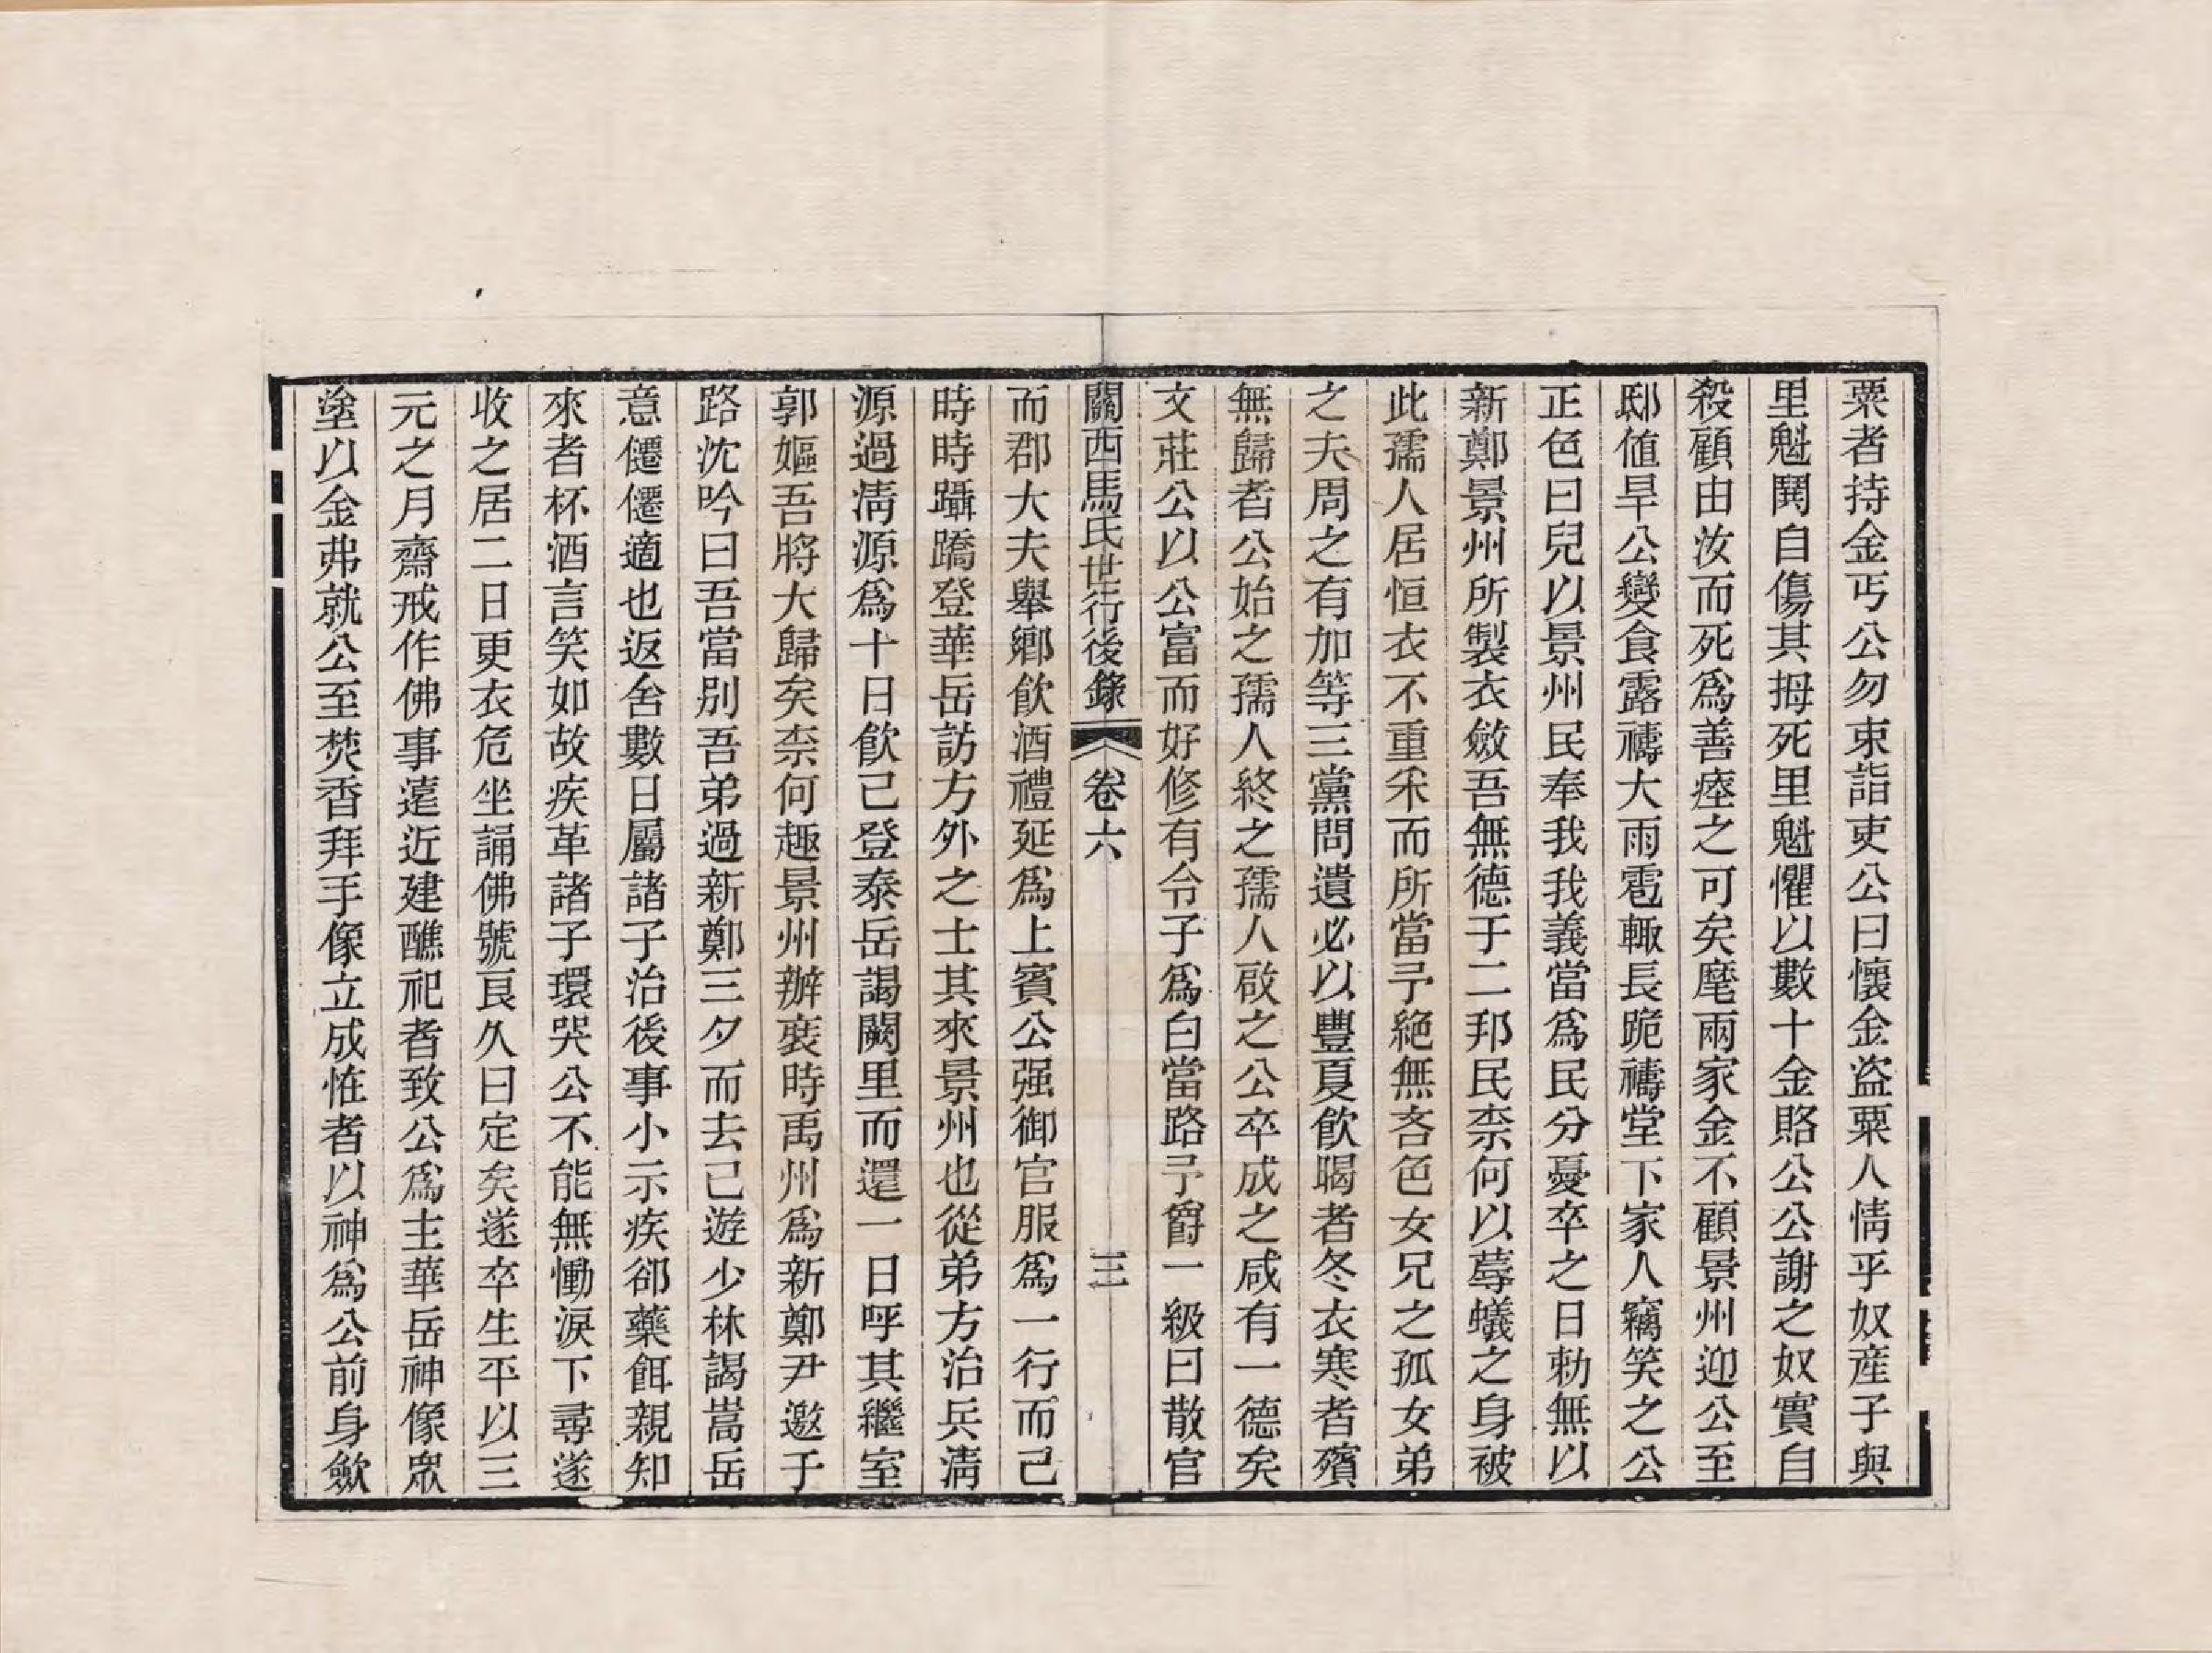 粟者持金丐公勿束詣吏公曰懷金盜粟人情乎奴産子與
里魁鬨自傷其拇死里魁懼以數十金賂公公謝之奴實自
殺顧由汝而死爲善瘞之可矣麾兩家金不顧景州迎公至
邸値旱公變食露禱大雨雹輙長跪禱堂下家人竊笑之公
正色曰兒以景州民奉我我義當爲民分憂卒之日勅無以
新鄭景州所製衣斂吾無德于二邦民柰何以蓐蟻之身被
此孺人居恒衣不重釆而所當予絶無吝色女兄之孤女弟
之夫周之有加等三黨問遺必以豐夏飮暍者冬衣寒者殯
無歸者公始之孺人終之孺人啟之公卒成之咸有一德矣
文莊公以公富而好修有令子爲白當路予爵一級曰散官
關西馬氏世行後錄 卷六 三
而郡大夫舉鄕飮酒禮延爲上賓公强御官服爲一行而已
時時躡蹻登華岳訪方外之士其來景州也從弟方治兵淸
源過淸源爲十日飮已登泰岳謁闕里而還一日呼其繼室
郭嫗吾將大歸矣柰何趣景州辦裝時禹州爲新鄭尹邀于
路沈吟曰吾當別吾弟過新鄭三夕而去已遊少林謁嵩岳
意僊僊適也返舍數日屬諸子治後事小示疾郤藥餌親知
來者杯酒言笑如故疾革諸子環哭公不能無慟淚下尋遂
收之居二日更衣危坐誦佛號良久曰定矣遂卒生平以三
元之月齋戒作佛事遠近建醮祀者致公爲主華岳神像眾
塗以金弗就公至焚香拜手像立成恠者以神爲公前身歛